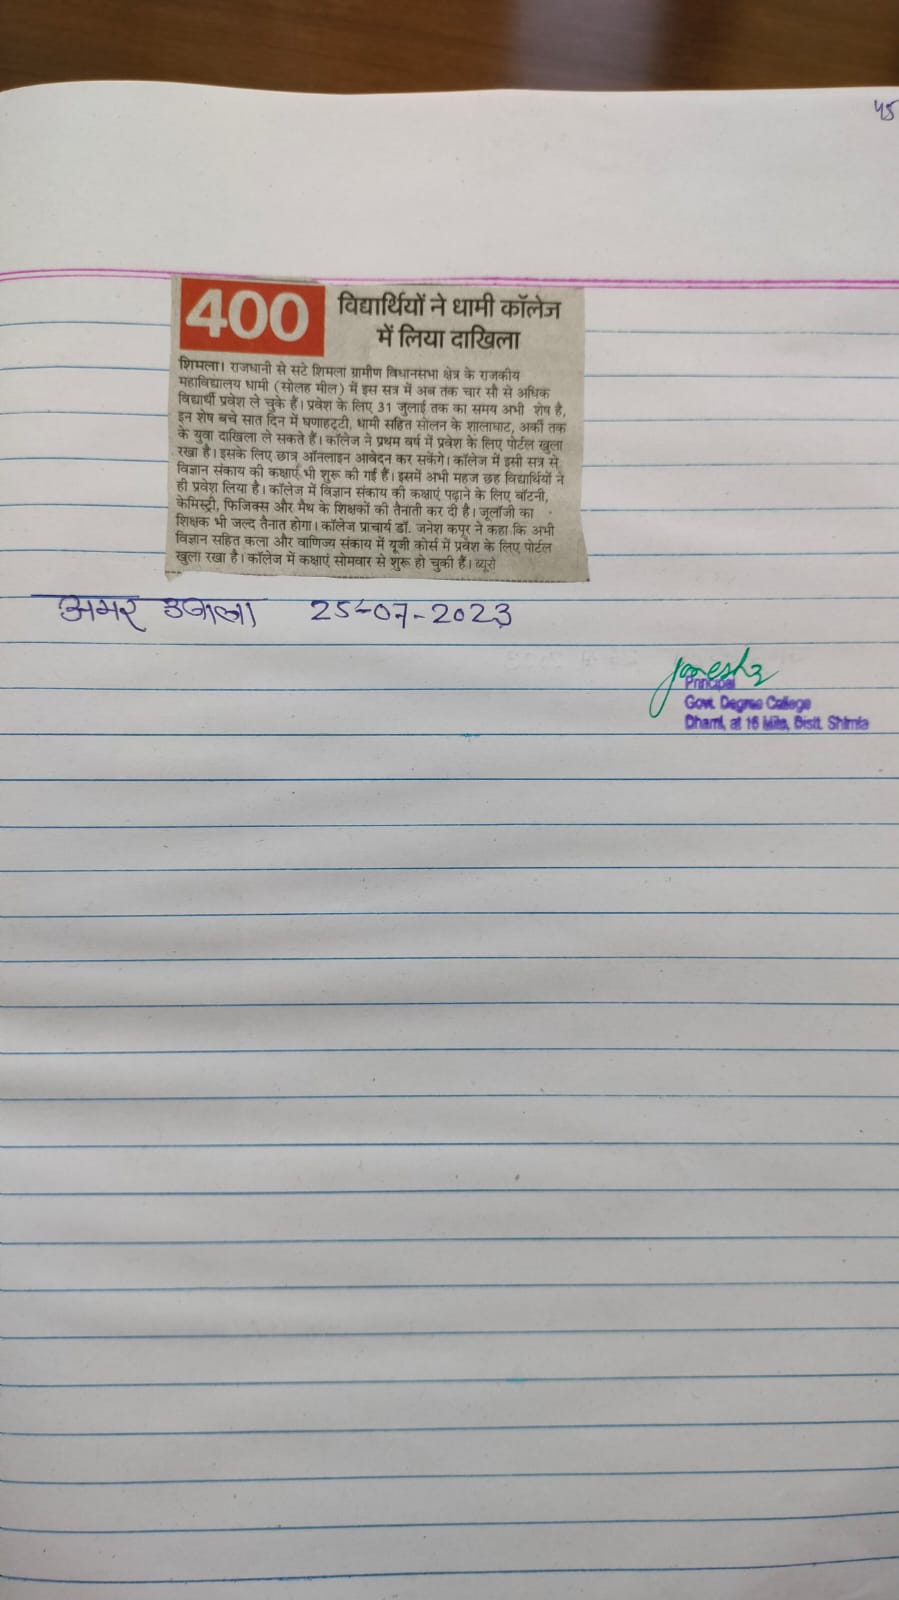 45
400 विद्यार्थियों ने धामी कॉलेज
में लिया दाखिला
शिमला। राजधानी से सटे शिमला ग्रामीण विधानसभा क्षेत्र के राजकीय
महाविद्यालय धामी (सोलह मील) में इस सत्र में अब तक चार सौ से अधिक
विद्यार्थी प्रवेश ले चुके हैं। प्रवेश के लिए 31 जुलाई तक का समय अभी शेष है,
इन शेष बचे सात दिन में घणाहट्टी, धामी सहित सोलन के शालाघाट, अर्की तक
के युवा दाखिला ले सकते हैं। कॉलेज ने प्रथम वर्ष में प्रवेश के लिए पोर्टल खुला
रखा है। इसके लिए छात्र ऑनलाइन आवेदन कर सकेंगे। कॉलेज में इसी सत्र से
विज्ञान संकाय की कक्षाएं भी शुरू की गई हैं। इसमें अभी महज छह विद्यार्थियों ने
ही प्रवेश लिया है। कॉलेज में विज्ञान संकाय की कक्षाएं पढ़ाने के लिए बॉटनी,
केमिस्ट्री, फिजिक्स और मैथ के शिक्षकों की तैनाती कर दी है। जूलॉजी का
शिक्षक भी जल्द तैनात होगा। कॉलेज प्राचार्य डॉ. जनेश कपूर ने कहा कि अभी
विज्ञान सहित कला और वाणिज्य संकाय में यूजी कोर्स में प्रवेश के लिए पोर्टल
खुला रखा है। कॉलेज में कक्षाएं सोमवार से शुरू हो चुकी हैं। ब्यूरो
अमर उजाला 25-07-2023
Principal
Govt. Degree College
Dhami, at 16 Mile, Distt. Shimla